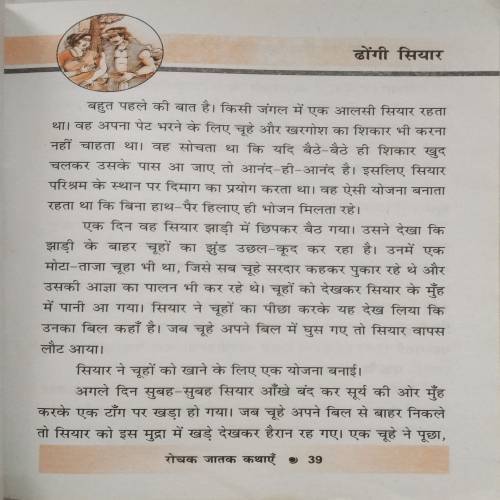 ढोंगी सियार
बहुत पहले की बात है। किसी जंगल में एक आलसी सियार रहता
था। वह अपना पेट भरने के लिए चूहे और खरगोश का शिकार भी करना
नहीं चाहता था। वह सोचता था कि यदि बैठे-बैठे ही शिकार खुद
चलकर उसके पास आ जाए तो आनंद-ही-आनंद है। इसलिए सियार
परिश्रम के स्थान पर दिमाग का प्रयोग करता था। वह ऐसी योजना बनाता
रहता था कि बिना हाथ-पैर हिलाए ही भोजन मिलता रहे।
एक दिन वह सियार झाड़ी में छिपकर बैठ गया। उसने देखा कि
झाड़ी के बाहर चूहों का झुंड उछल-कूद कर रहा है। उनमें एक
मोटा-ताजा चूहा भी था, जिसे सब चूहे सरदार कहकर पुकार रहे थे और
उसकी आज्ञा का पालन भी कर रहे थे। चूहों को देखकर सियार के मुँह
में पानी आ गया। सियार ने चूहों का पीछा करके यह देख लिया कि
उनका बिल कहाँ है। जब चूहे अपने बिल में घुस गए तो सियार वापस
लौट आया।
सियार ने चूहों को खाने के लिए एक योजना बनाई।
अगले दिन सुबह-सुबह सियार आँखे बंद कर सूर्य की ओर मुँह
करके एक टाँग पर खड़ा हो गया। जब चूहे अपने बिल से बाहर निकले
तो सियार को इस मुद्रा में खड़े देखकर हैरान रह गए। एक चूहे ने पूछा,
रोचक जातक कथाएँ ● 39